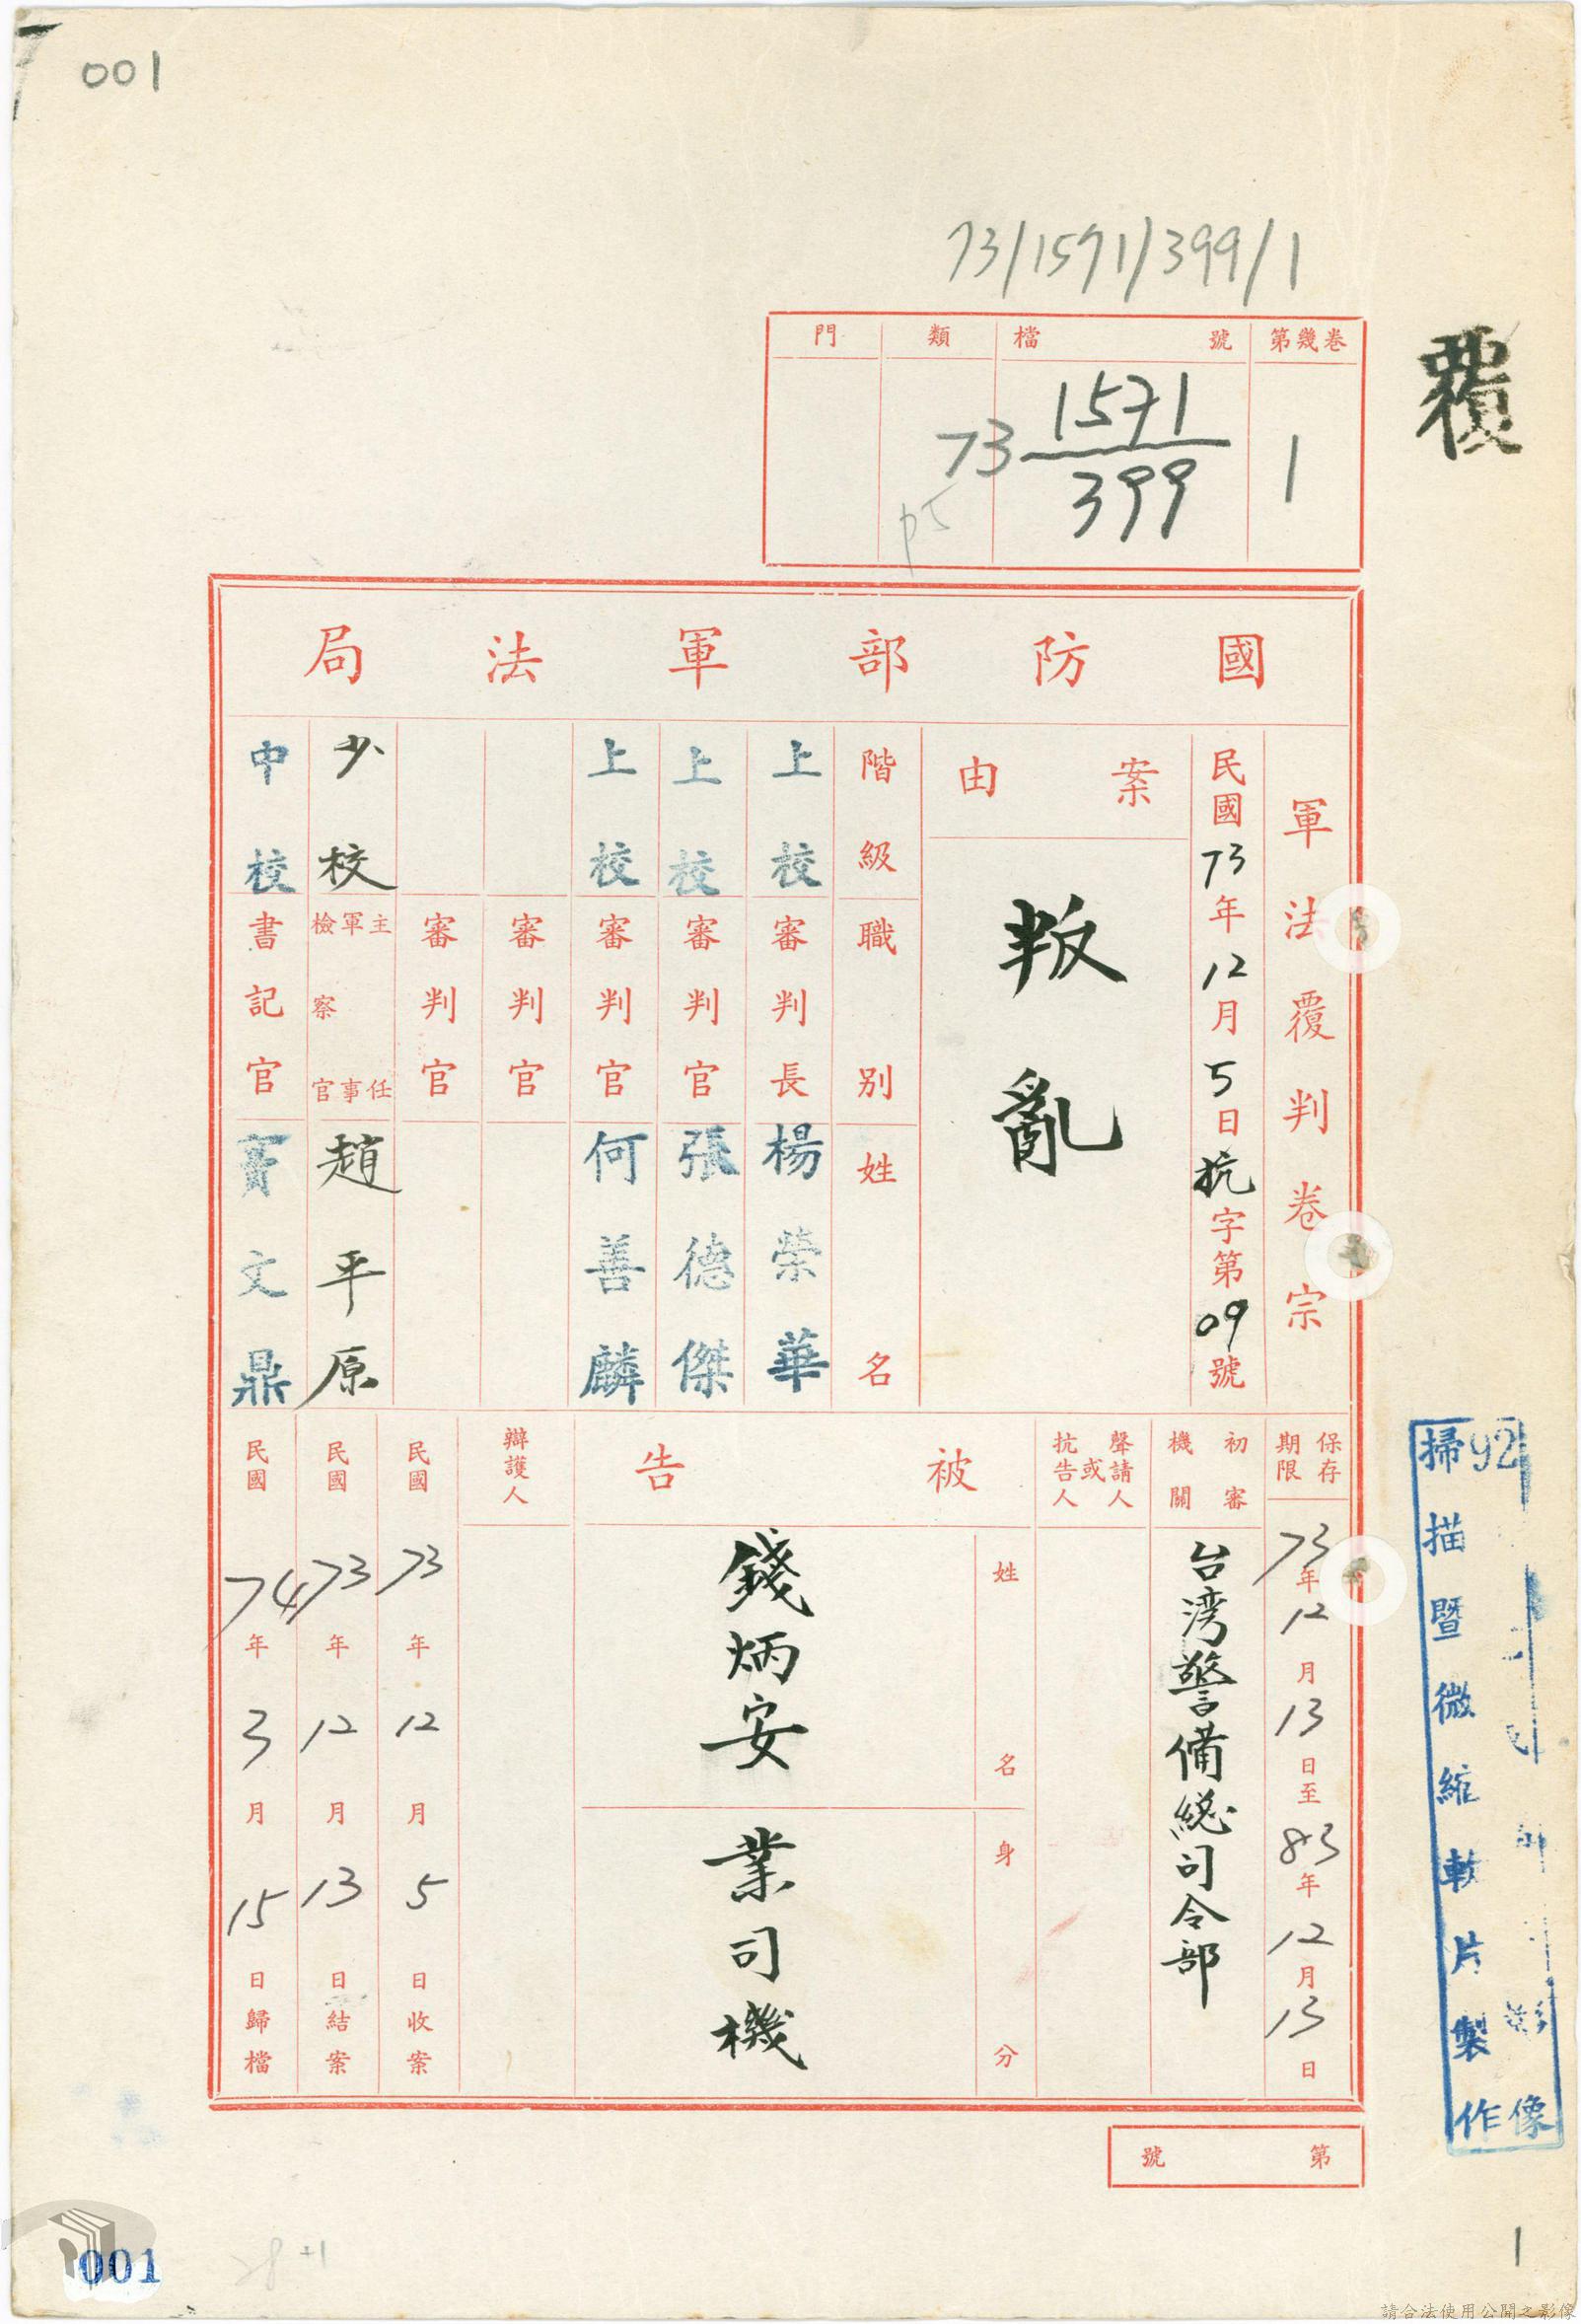 001
73/1571/399/1
覆
門 類 檔號 第幾卷
73 1571/399 1
p5
國防部軍法局
軍法覆判卷宗
民國73年12月5日抗字第09號
案由
叛亂
階級 職別 姓名
上校 審判長 楊榮華
上校 審判官 張德傑
上校 審判官 何善麟
審判官
審判官
少校 主任軍事檢察官 趙平原
中校 書記官 賈文鼎
保存期限
73年12月13日至83年12月13日
初審機關
台湾警備総司令部
聲請人或抗告人
被告
姓名
錢炳安
身分
業司機
辯護人
民國73年12月5日收案
民國73年12月13日結案
民國74年3月15日歸檔
第 號
92
影像
掃描暨微縮軟片製作
001
1
請合法使用公開之影像